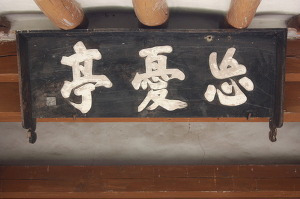 忘憂亭